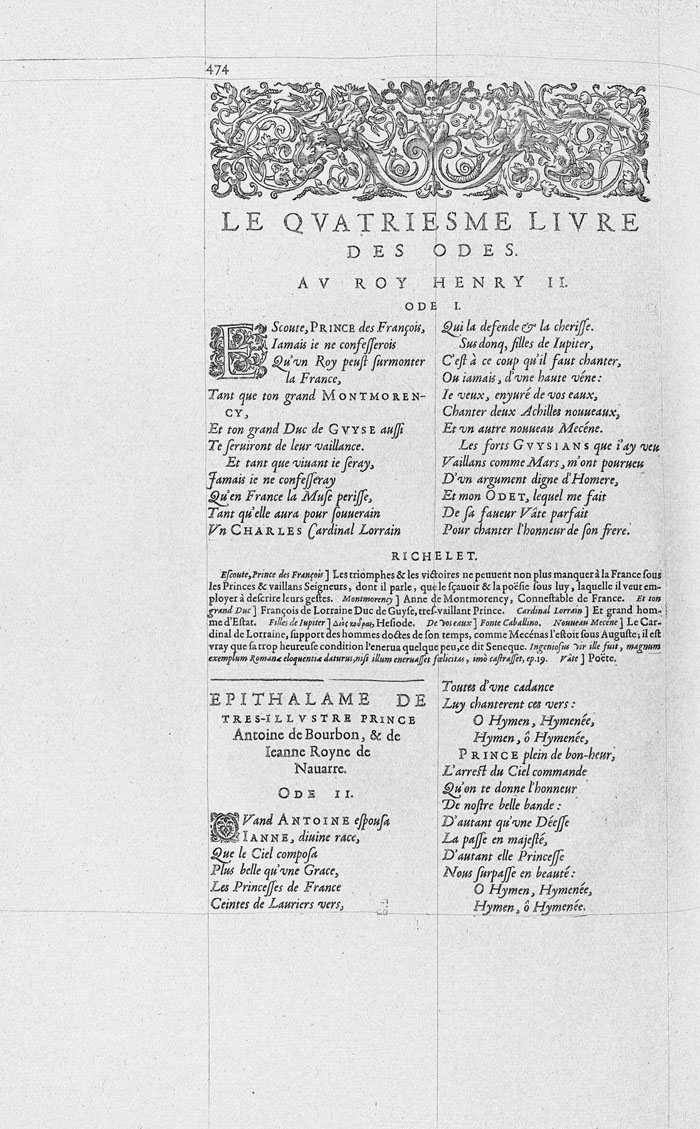 474
LE QVATRIESME LIVRE
DES ODES.
AV ROY HENRY II.
ODE I.
EScoute, PRINCE des François,
Iamais ie ne confesserois
Qu'vn Roy peust surmonter
la France,
Tant que ton grand MONTMOREN-
CY,
Et ton grand Duc de GVYSE aussi
Te seruiront de leur vaillance.
Et tant que viuant ie seray,
Jamais ie ne confesseray
Qu'en France la Muse perisse,
Tant qu'elle aura pour souuerain
Vn CHARLES Cardinal Lorrain
Qui la defende & la cherisse.
Sus donq, filles de Iupiter,
C'est à ce coup qu'il faut chanter,
Ou iamais, d'vne haute véne:
Ie veux, enyuré de vos eaux,
Chanter deux Achilles nouueaux,
Et vn autre nouueau Mecéne.
Les forts GVYSIANS que i'ay veu
Vaillans comme Mars, m'ont pourueu
D'vn argument digne d'Homere,
Et mon ODET, lequel me fait
De sa faueur Vâte parfait
Pour chanter l'honneur de son frere.
RICHELET.
Escoute, Prince des François] Les triomphes & les victoires ne peuuent non plus manquer à la France sous
les Princes & vaillans Seigneurs, dont il parle, que le sçauoir & la poësie sous luy, laquelle il veut em-
ployer à descrire leurs gestes. Montmorency] Anne de Montmorency, Connestable de France. Et ton
grand Duc] François de Lorraine Duc de Guyse, tres-vaillant Prince. Cardinal Lorrain] Et grand hom-
me d'Estat. Filles de Iupiter] Διὸς κοῦραι, Hesiode. De vos eaux] Fonte Caballino. Nouueau Mecéne] Le Car-
dinal de Lorraine, support des hommes doctes de son temps, comme Mecénas l'estoit sous Auguste; il est
vray que sa trop heureuse condition l'enerua quelque peu, ce dit Seneque. Ingeniosus vir ille fuit, magnum
exemplum Romanæ eloquentiæ daturus, nisi illum eneruasset fœlicitas, imò castrasset, ep.19. Vâte] Poëte.
EPITHALAME DE
TRES-ILLVSTRE PRINCE
Antoine de Bourbon, & de
Ieanne Royne de
Nauarre.
ODE II.
QVand ANTOINE espousa
IANNE, diuine race,
Que le Ciel composa
Plus belle qu'vne Grace,
Les Princesses de France
Ceintes de Lauriers vers,
Toutes d'vne cadance
Luy chanterent ces vers:
O Hymen, Hymenée,
Hymen, ô Hymenée,
PRINCE plein de bon-heur,
L'arrest du Ciel commande
Qu'on te donne l'honneur
De nostre belle bande:
D'autant qu'vne Déesse
La passe en majesté,
D'autant elle Princesse
Nous surpasse en beauté:
O Hymen, Hymenée,
Hymen, ô Hymenée.